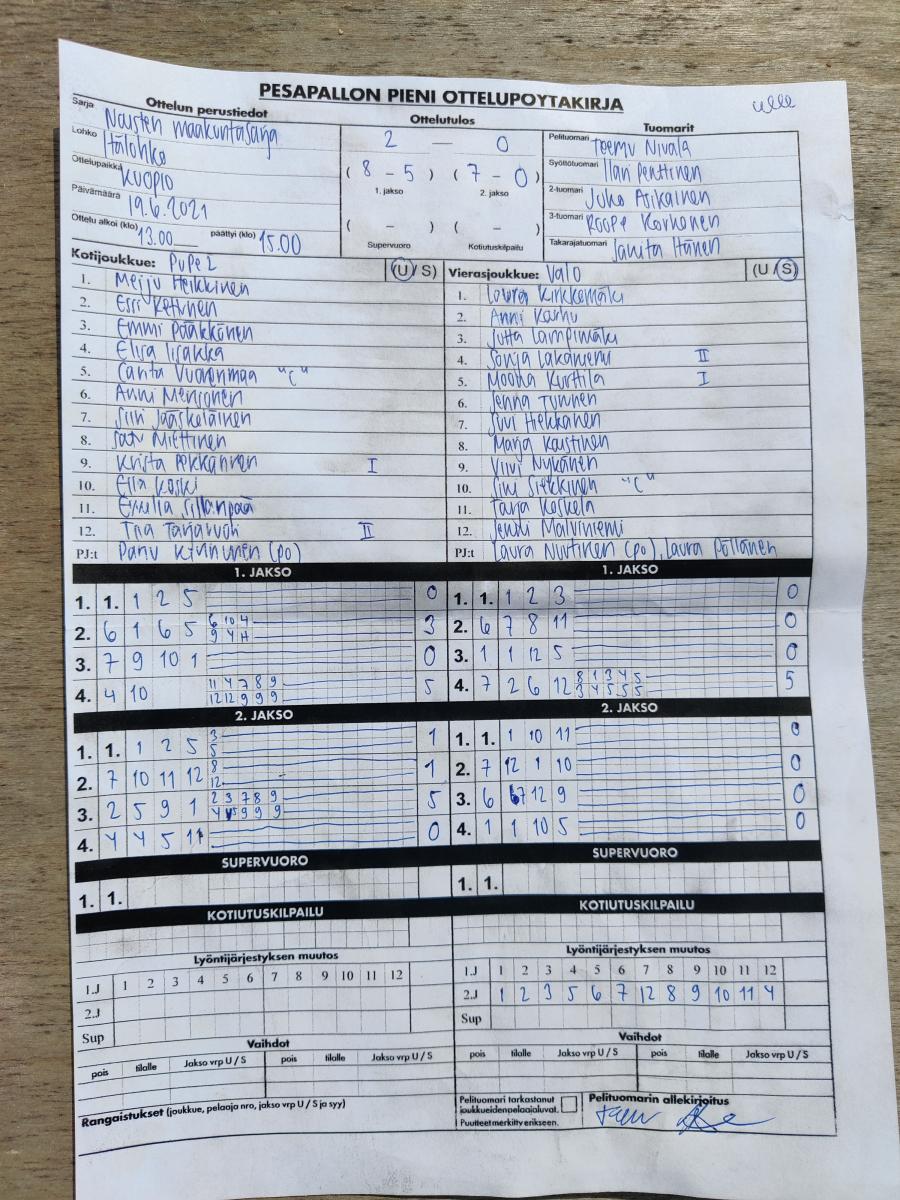 PESAPALLON PIENI OTTELUPOYTAKIRJA
Ottelun perustiedot
Sarja Naisten maakuntasarja
Lohko Itälohko
Ottelupaikka KUOPIO
Päivämäärä 19.6.2021
Ottelu alkoi (klo) 13.00 päättyi (klo) 15.00
Ottelutulos
2 — 0
( 8 - 5 ) ( 7 - 0 )
1. jakso 2. jakso
( - ) ( - )
Supervuoro Kotiutuskilpailu
Tuomarit
Pelituomari Teemu Nivala
Syöttötuomari Ilari Penttinen
2-tuomari Juho Asikainen
3-tuomari Roope Korhonen
Takarajatuomari Janita Itänen
Kotijoukkue: PuPe 2 (U / S)
1. Meiju Heikkinen
2. Essi Ketunen
3. Emmi Pääkkönen
4. Elisa Iisakka
5. Carita Vuorenmaa "C"
6. Anni Mensonen
7. Siiri Jääskeläinen
8. Satu Miettinen
9. Krista Pekkarinen I
10. Ella Koski
11. Eveliia Sillanpää
12. Tiia Tarjavuori II
PJ:t Panu Kinnunen (po)
Vierasjoukkue: Valo (U / S)
1. Loviisa Kirkkomäki
2. Anni Karhu
3. Jutta Lampimäki
4. Sonja Lakaniemi II
5. Moona Kurttila I
6. Jenna Tunnen
7. Suvi Hiekkanen
8. Marja Kaustinen
9. Viivi Nykänen
10. Sini Siekkinen "C"
11. Tarja Koskela
12. Jenni Malviniemi
PJ:t Laura Nuutinen (po), Laura Pöllänen
1. JAKSO
1. 1. 1 2 5 0
2. 6 1 6 5 6 10 4 3
9 4 11
3. 7 9 10 1 0
4. 4 10 11 4 7 8 9 5
12 12 9 9 9
1. JAKSO
1. 1. 1 2 3 0
2. 6 7 8 11 0
3. 1 1 12 5 0
4. 7 2 6 12 8 1 3 4 5 5
3 4 5 5 5
2. JAKSO
1. 1. 1 2 5 3 1
5
2. 7 10 11 12 8 1
12
3. 2 5 9 1 2 3 7 8 9 5
4 5 9 9 9
4. 4 4 5 11 0
2. JAKSO
1. 1. 1 10 11 0
2. 7 12 1 10 0
3. 6 7 12 9 0
4. 1 1 10 5 0
SUPERVUORO
1. 1.
SUPERVUORO
1. 1.
KOTIUTUSKILPAILU
KOTIUTUSKILPAILU
Lyöntijärjestyksen muutos
1.J 1 2 3 4 5 6 7 8 9 10 11 12
2.J
Sup
Lyöntijärjestyksen muutos
1.J 1 2 3 4 5 6 7 8 9 10 11 12
2.J 1 2 3 5 6 7 12 8 9 10 11 4
Sup
Vaihdot
pois tilalle Jakso vrp U / S pois tilalle Jakso vrp U / S
Vaihdot
pois tilalle Jakso vrp U / S pois tilalle Jakso vrp U / S
Rangaistukset (joukkue, pelaaja nro, jakso vrp U / S ja syy)
Pelituomari tarkastanut
joukkueidenpelaajaluvat.
Puutteet merkitty erikseen.
Pelituomarin allekirjoitus